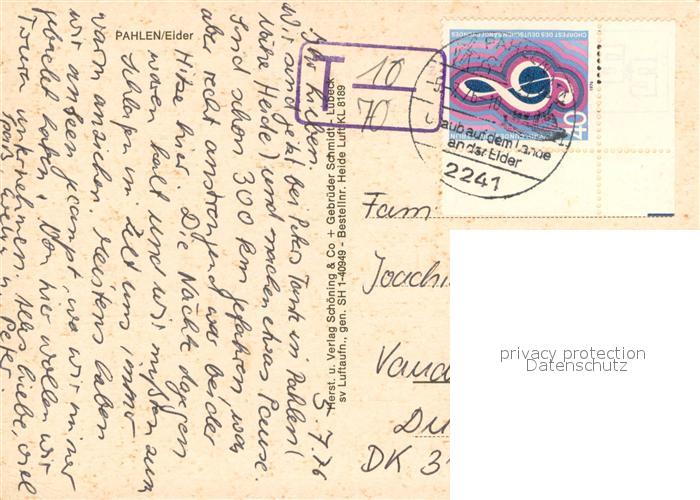 PAHLEN/Eider
5.7.76
Ihr Lieben
Wir sind jetzt bei Peters Tante in Pahlen (
Nähe Heide) und machen etwas Pause.
Sind schon 300 km gefahren, was
aber recht anstrengend war bei der
Hitze hier. Die Nächte dagegen
waren kalt und wir mußten zum
Schlafen im Zelt uns immer
warm anziehen. Meistens haben
wir an gecampt, wo wir immer
gebadet haben. Von hier wollen wir
Touren unternehmen. Alles Liebe, viel
Spaß
u. Peter.
Herst. u. Verlag Schöning & Co + Gebrüder Schmidt - Lübeck
sv Luftaufn., gen. SH 1-40949 - Bestellnr. Heide Luft KL 8189
T
10
70
CHORFEST DES DEUTSCHEN SÄNGERBUNDES
40
auf dem Lande
an der Eider
2241
Fam.
Joachi
Vana
Du
DK 3
privacy protection
Datenschutz